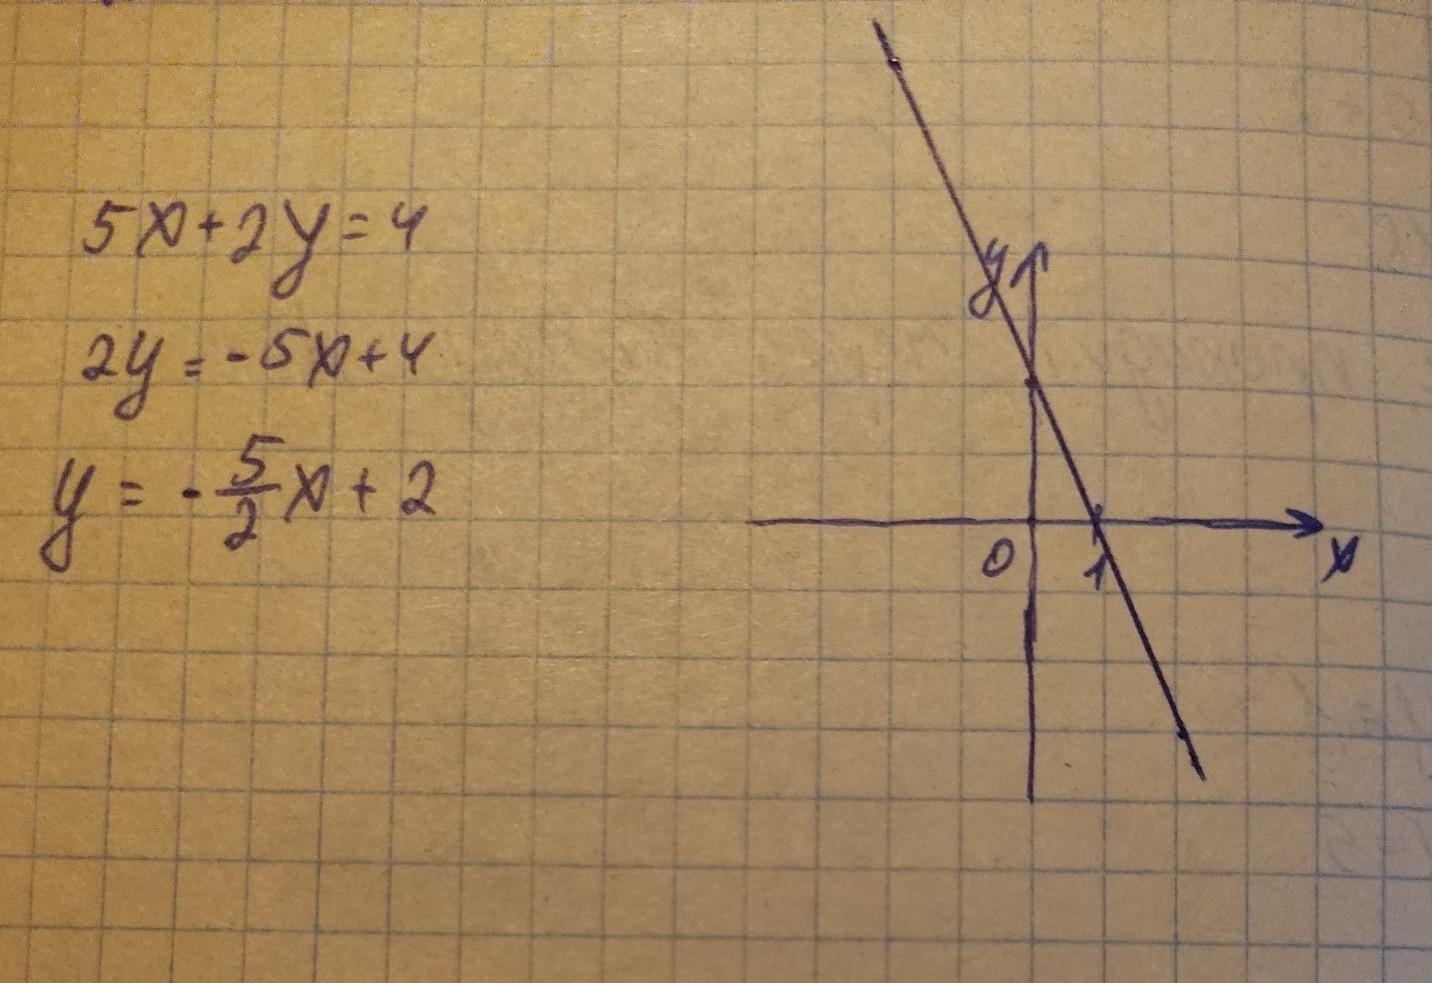 5x+2y=4
2y=-5x+4
y = -5/2x+2
y
0 1 x